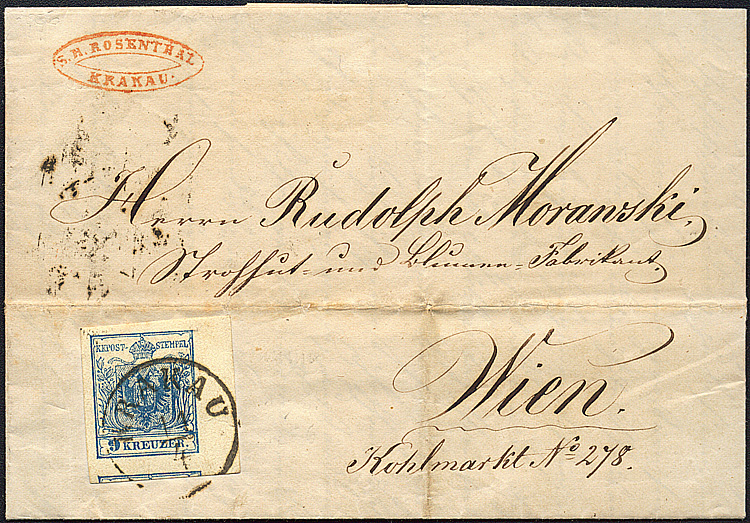 S. H. ROSENTHAL
KRAKAU.
Herrn Rudolph Morawski,
Strohhut- und Blumen-Fabrikant.
Wien.
Kohlmarkt No 278.
KKPOST-STEMPEL
9 KREUZER.
KRAKAU